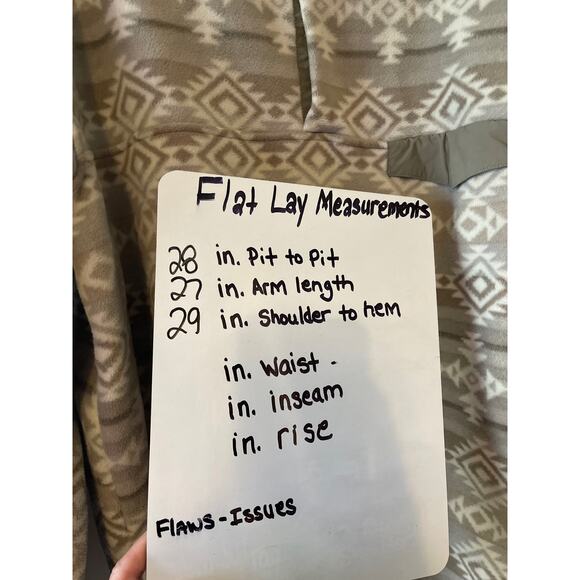 Flat Lay Measurements
28 in. Pit to Pit
27 in. Arm length
29 in. Shoulder to hem
in. Waist -
in. inseam
in. rise
FLAWS - ISSUES